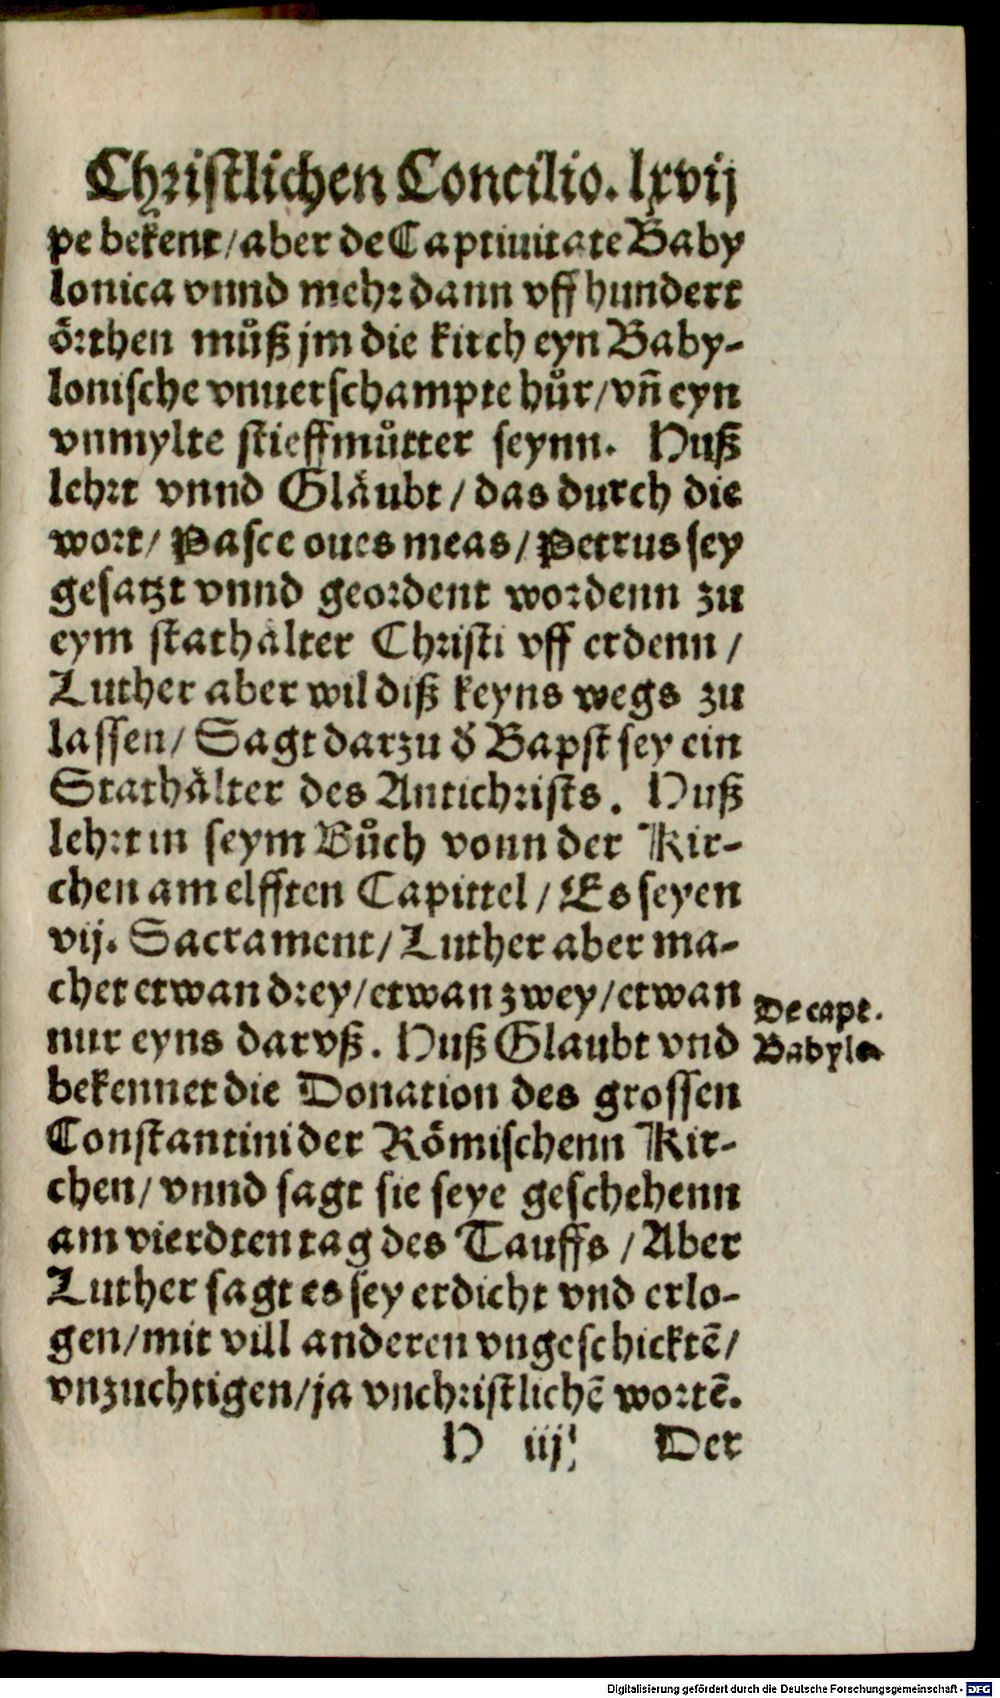 Christlichen Concilio. lxvij
pe bekent/aber de Captiuitate Baby
lonica vnnd mehr dann vff hundert
örthen můß jm die kirch eyn Baby-
lonische vnuerschampte hůr/vñ eyn
vnmylte stieffmůtter seynn. Huß
lehrt vnnd Gläubt/das durch die
wort/Pasce oues meas/Petrus sey
gesatzt vnnd geordent wordenn zu
eym stathalter Christi vff erdenn/
Luther aber wil diß keyns wegs zu
lassen/Sagt darzu d̕ Bapst sey ein
Stathälter des Antichrists. Huß
lehrt in seym Bůch vonn der Kir-
chen am elfften Capittel/Es seyen
vij. Sacrament/Luther aber ma-
chet etwan drey/etwan zwey/etwan
nur eyns darvß. Huß Glaubt vnd
De capt.
Babylo
bekennet die Donation des grossen
Constantini der Römischenn Kir-
chen/vnnd sagt sie seye geschehenn
am vierdten tag des Tauffs/Aber
Luther sagt es sey erdicht vnd erlo-
gen/mit vill anderen vngeschicktẽ/
vnzuchtigen/ja vnchristlichẽ wortẽ.
H iij Der
Digitalisierung gefördert durch die Deutsche Forschungsgemeinschaft - DFG